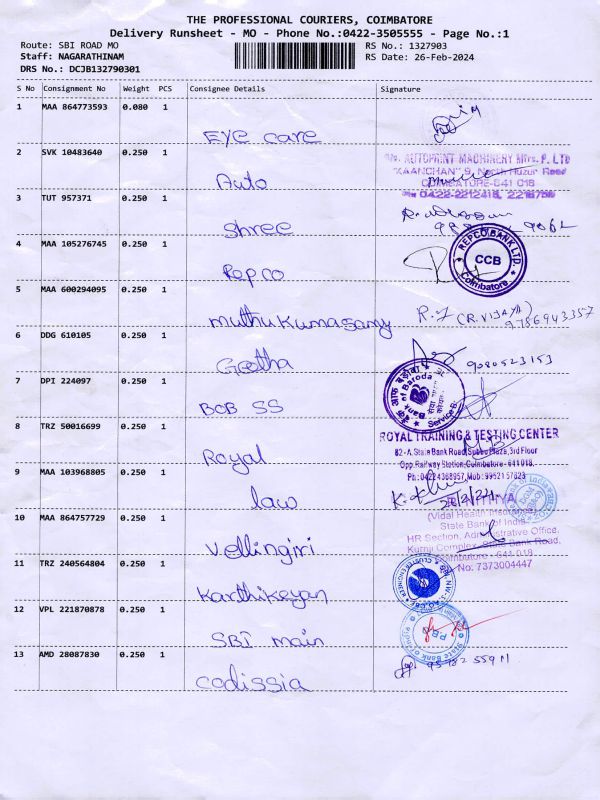 THE PROFESSIONAL COURIERS, COIMBATORE
Delivery Runsheet - MO - Phone No.:0422-3505555 - Page No.:1
Route: SBI ROAD MO RS No.: 1327903
Staff: NAGARATHINAM RS Date: 26-Feb-2024
DRS No.: DCJB132790301
S No Consignment No Weight PCS Consignee Details Signature
1 MAA 864773593 0.080 1
Eye care
2 SVK 10483640 0.250 1
AUTOPRINT MACHINERY Mfrs. P. LTD
"KAANCHAN" 9, North Huzur Road
Auto
COIMBATORE-641 018
3 TUT 957371 0.250 1
0422-2212418,
Shree
4 MAA 105276745 0.250 1
REPCO BANK LTD.
CCB
Coimbatore
Repco
5 MAA 600294095 0.250 1
muthukumasamy
R.J (R. VIJAYA)
9786943357
6 DDG 610105 0.250 1
Geetha
9080523153
7 DPI 224097 0.250 1
Bank of Baroda
BOB SS
8 TRZ 50016699 0.250 1
ROYAL TRAINING & TESTING CENTER
82-A, State Bank Road, Plaza, 3rd Floor
Royal
Opp. Railway Station, Coimbatore - 641 018.
9 MAA 103968805 0.250 1
Ph: 0422 4368957, Mob: 99521 57823
law
26/2/24
10 MAA 864757729 0.250 1
(Vidal Health Insurance)
State Bank of India
HR Section, Administrative Office,
Vellingiri
State Bank Road,
Coimbatore - 641 018
11 TRZ 240564804 0.250 1
No: 7373004447
Karthikeyan
12 VPL 221870878 0.250 1
State Bank of India
SBI main
13 AMD 28087830 0.250 1
codissia